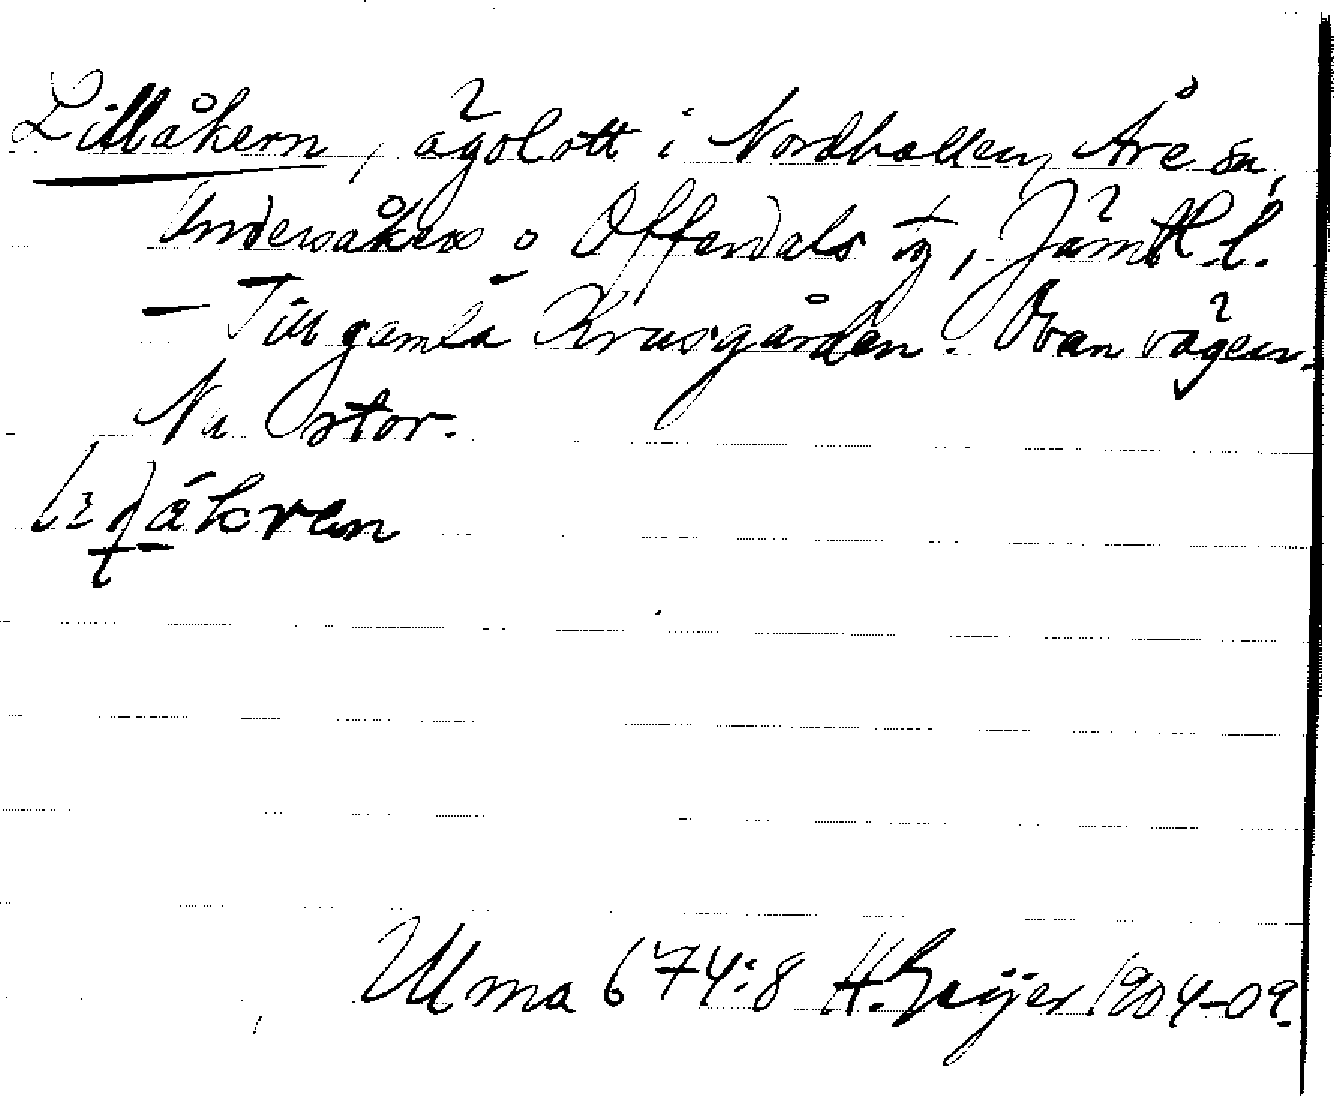 Lillåkern, ägolott i Nordhallen, Åre sn,
Undersåkers o Offerdals tg, Jämtl l.
– Till gamla Krusgården. Ovan vägen.
Nu stor.
åkren
Ulma 674:8 H. Geijer 1904-09.